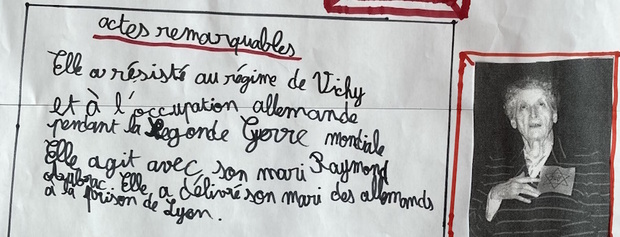 actes remarquables
Elle a résisté au régime de Vichy
et à l'occupation allemande
pendant la Segonde Gerre mondiale
Elle agit avec son mari Raymond
Aubrac. Elle a délivré son mari des allemands
à la prison de Lyon.